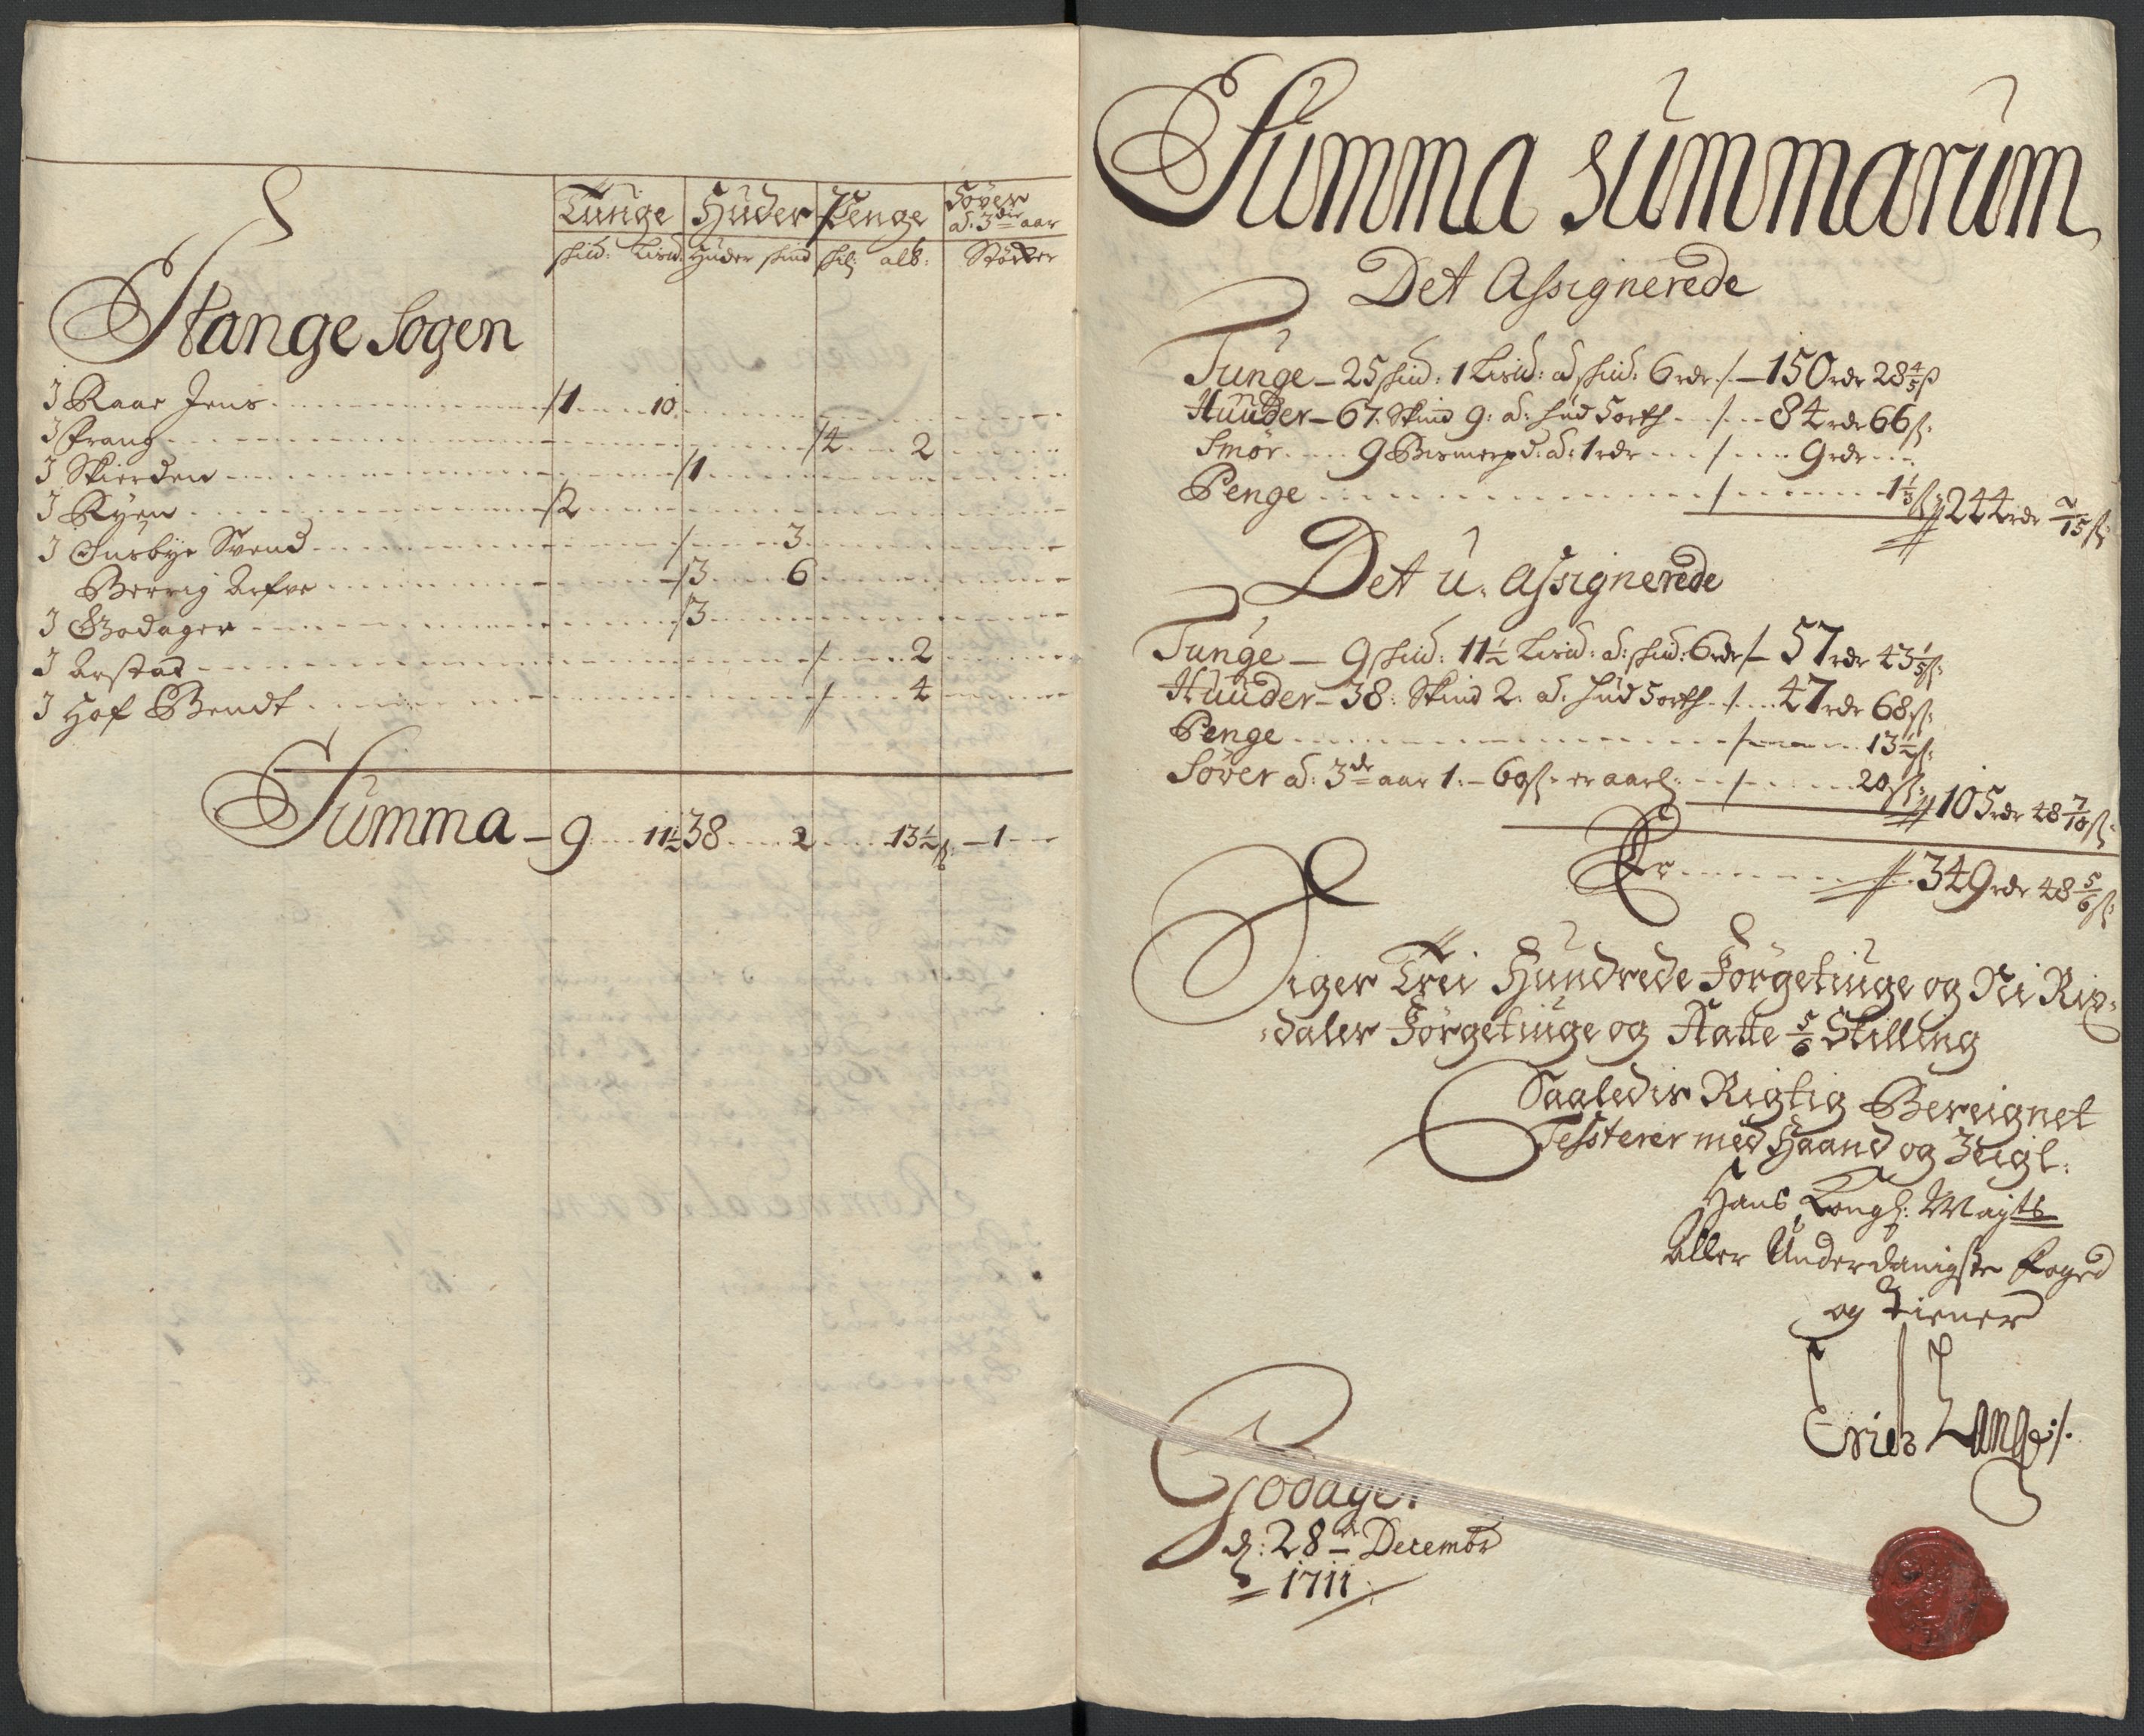 Tunge Huder Penge Söver
a: 3die aar
skid: Lisd: Huder skind skl: alb: Støcker
Stange Sogen
I Raae Jens /1 10
I Frang /4 2
I Skierden /1
I Ryen /2
I Svend / 3
Berrig /3 6
I Godager /3
I Arstad / 2
I Hof Bendt / 4
Summa – 9 11½ 38 2 13½ s: – 1
Summa summarum
Det Assignerede
Tunge – 25 skid: 1 Lisd: a skid: 6 rdr ./. – 150 rdr 28 4/5 s
Huuder – 67. Skind 9: a: Hud 5 orth ./. 84 rdr 66 s:
Smör 9 Bismerpd: a: 1 rdr / 9 rdr
Penge / 1⅓ s: 244 rdr 2/15 s:
Det u. assignerede
Tunge – 9 skid: 11½ Lisd: a: skid: 6 rdr /– 57 rdr 43 1/5 s:
Huuder – 38: Skind 2. a: Hud 5 orth ./. 47 rdr 68 s:
Penge / 13½ s:
Söver a: 3de aar 1. – 60 s: er aarl: / 20 s: 105 rdr 48 7/10 s:
Er 349 rdr 48 5/6 s:
Siger Trei Hundrede Förgetiuge og Ni Rix-
daler Förgetiuge og Aatte 5/6 Skilling
Saaledis Rigtig Bereignet
Testerer med Haand og Zeigl:
Hans Kongl: Mayts
Aller Underdanigste Foged
og Tiener
Erich Lange
Godager
d: 28de Decembr
1711